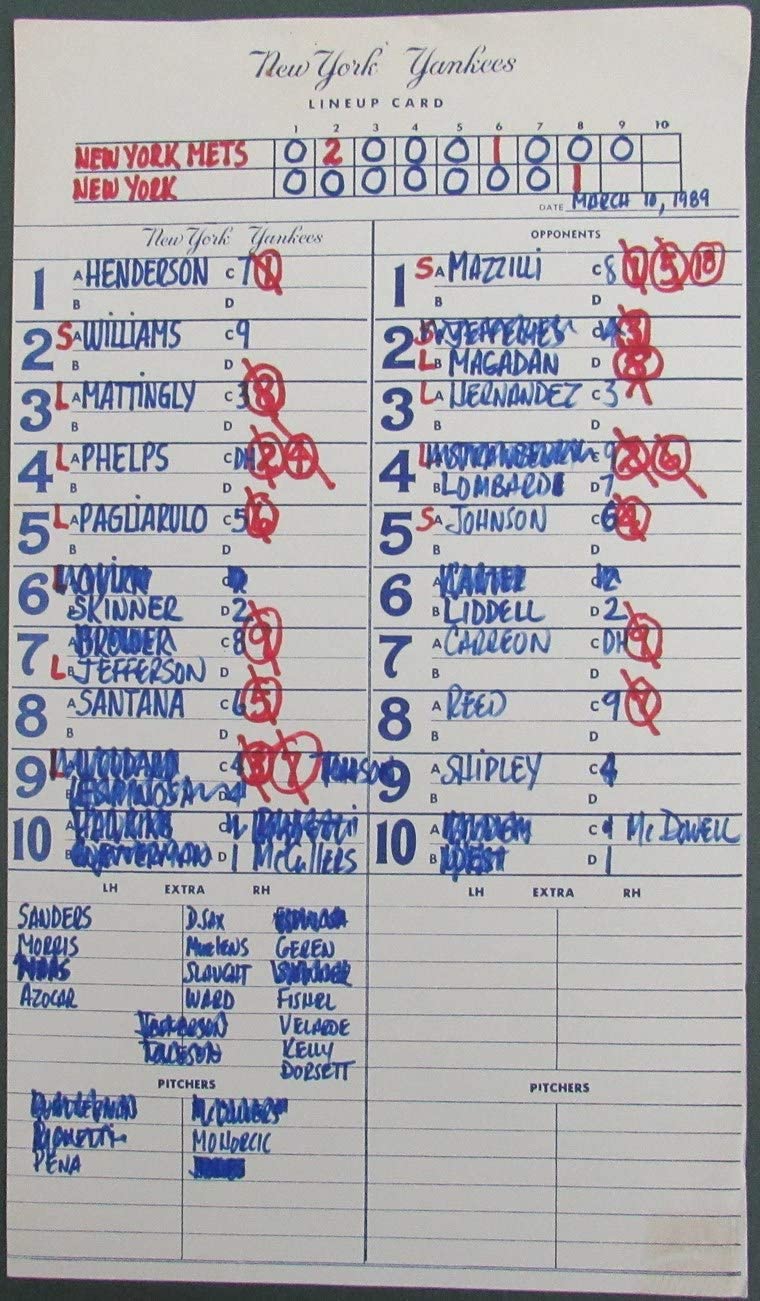 New York Yankees
LINEUP CARD
1 2 3 4 5 6 7 8 9 10
NEW YORK METS 0 2 0 0 0 1 0 0 0
NEW YORK 0 0 0 0 0 0 0 1
DATE MARCH 10, 1989
New York Yankees
1 A HENDERSON C 7
B D
2 S A WILLIAMS C 9
B D
3 L A MATTINGLY C 3 8
B D
4 L A PHELPS C DH 2 4
B D
5 L A PAGLIARULO C 5 6
B D
6 L A C
B SKINNER D 2
7 A BROWER C 8 9
L B JEFFERSON D
8 A SANTANA C 6 5
B D
9 L A C 4
B
10 A C
B D 1 McCULLERS
LH EXTRA RH
SANDERS D. SAX
MORRIS MUELENS GEREN
SLAUGHT
AZOCAR WARD FISHEL
VELARDE
KELLY
DORSETT
PITCHERS
MOHORCIC
PENA
OPPONENTS
1 S A MAZZILLI C 8 1 5 10
B D
2 A JEFFERIES C 3
L B MAGADAN D 8
3 L A HERNANDEZ C 3
B D
4 L A STRAWBERRY C 9 2 6
B LOMBARDI D 7
5 S A JOHNSON C 6
B D
6 A CARTER C
B LIDDELL D 2
7 A CARREON C DH 9
B D
8 A REED C 9
B D
9 A SHIPLEY C 4
B D
10 A C McDOWELL
B WEST D 1
LH EXTRA RH
PITCHERS